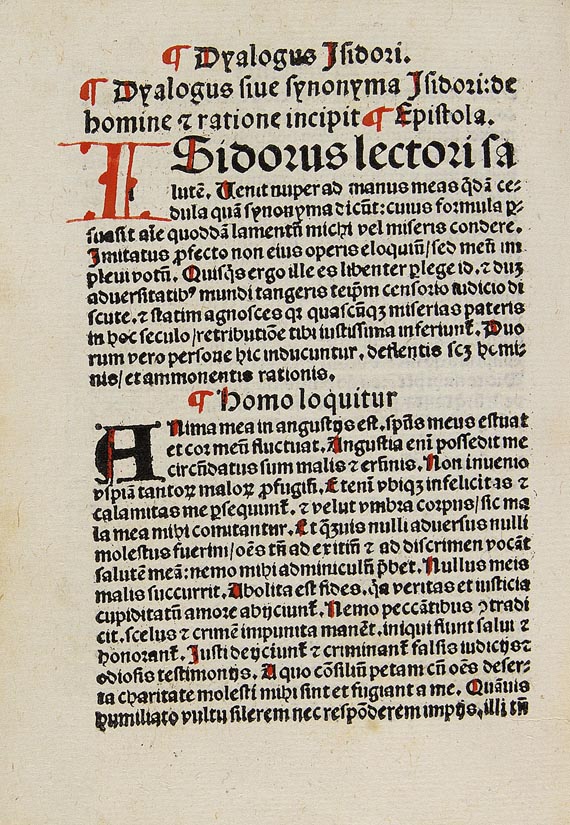 ¶ Dyalogus Isidori.
¶ Dyalogus siue synonyma Isidori: de
homine ⁊ ratione incipit ¶ Epistola.
ISidorus lectori sa
lutē. Uenit nuper ad manus meas q̄dā ce-
dula quā synonyma dicūt: cuius formula ꝑ-
suasit aīe quoddā lamentū michi vel miseris condere.
Imitatus ꝓfecto non eius operis eloquiū/sed meū im
pleui votū. Quisq̄s ergo ille es libenter ꝑlege id. ⁊ dum
aduersitatibꝰ mundi tangeris teip̄m censorio iudicio di
scute. ⁊ statim agnosces qꝛ quascūqꝫ miserias pateris
in hoc seculo/retributiōe tibi iustissima inferiunt̄. Duo
rum vero persone hic inducuntur. deflentis scꝫ homi-
nis/et ammonentis rationis.
¶ Homo loquitur
ANima mea in angustijs est. spūs meus estuat
et cor meū fluctuat. Angustia enī possedit me
circūdatus sum malis et
Non inuenio
vspiā tantoꝝ maloꝝ ꝓfugiū. Et enī vbiqꝫ infelicitas ⁊
calamitas me ꝑsequunt̄. ⁊ velut vmbra corpus/sic ma
la mea mihi comitantur. Et qͣꝫuis nulli aduersus nulli
molestus fuerim/oēs tn̄ ad exitiū ⁊ ad discrimen vocāt
salutē meā: nemo mihi adminiculū p̄bet. Nullus meis
malis succurrit. Abolita est fides. qꝛ veritas et iusticia
cupiditatū amore abijciunt̄. Nemo peccātibus ꝯtradi
cit. scelus ⁊ crimē impunita manēt. iniqui fiunt salui ⁊
honorant̄. Justi deijciunt̄ ⁊ criminant̄ falsis iudicijs ⁊
odiosis testimonijs. A quo cōsiliū petam cū oēs deser-
ta charitate molesti mihi sint et fugiant a me. Quāuis
humiliato vultu silerem nec respōderem impijs, illi tn̄